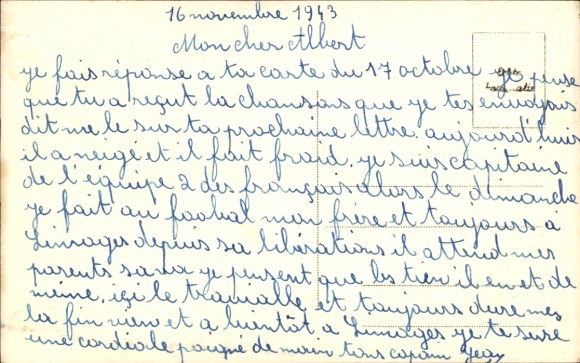 16 novembre 1943
Mon cher Albert
ye fais réponse a ta carte du 17 octobre ye pense
que tu a reçut la chansons que ye tes envoyais
dit me le sur ta prochaine lettre aujourd'huis
il a neigé et il fait froid, ye suis capitaine
de l'équipe 2 des français alors le dimanche
ye fait au foobal mon frère et toujours à
Limoges depuis sa libérations il attend mes
parents sava ye pensent que les tien il en et de
meme, içi le travialle et toujours dure mes
la fin vien et a bientôt a Limoges ye te sere
une cordiale poigné de main tons copain Jean